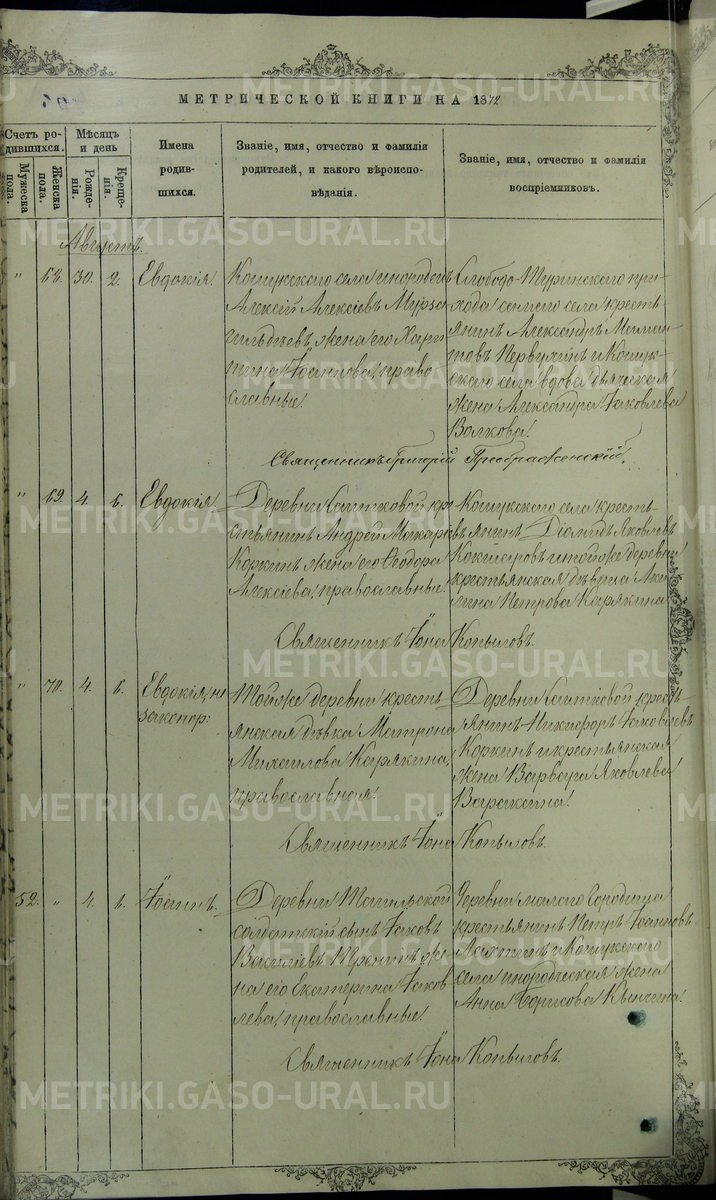 МЕТРИЧЕСКОЙ КНИГИ НА 1872
Счетъ ро-
дившихся.
Мужеска
пола.
Женска
пола.
Мѣсяцъ
и день
Рожде-
нія.
Креще-
нія.
Имена
родив-
шихся.
Званіе, имя, отчество и фамилія
родителей, и какого вѣроиспо-
вѣданія.
Званіе, имя, отчество и фамилія
воспріемниковъ.
Августъ.
" 68. 30. 2. Евдокія.
Кошукскаго села инородецъ
Алексій Алексіевъ
жена его
Іоаннова, право
славные.
Слободо-Туринскаго при-
хода самаго села кресть
янинъ Александръ
Первухинъ и Кошук
скаго села вдова дьяческая
жена Александра Іаковлева
Волкова.
Священникъ Григорій Преображенскій.
" 69. 4. 6. Евдокія.
Деревни кре
стьянинъ Андрей Макаровъ
Коркинъ, жена его Ѳеодора
Алексіева, православные.
Кошукскаго села кресть-
янинъ Діомидъ Яковлевъ
и тойже деревни
крестьянская дѣвица Аки
лина Петрова Карякина
Священникъ Іона Копыловъ.
" 70. 4. 6. Евдокія, не
законнор:
Тойже деревни кресть-
янская дѣвка Матрона
Михаилова Карякина,
православная.
Деревни кресть
янинъ Никифоръ Іаковлевъ
Коркинъ и крестьянская
жена Варвара Яковлева
Варакина.
Священникъ Іона Копыловъ.
52. " 4. 6. Іоаннъ.
Деревни Тагильской
солдатскій сынъ Іаковъ
Василіевъ же
на его Екатерина Іаков
лева, православные.
Деревни малаго Городища
крестьянинъ Петръ Іоанновъ
Лахтинъ и Кошукскаго
села инородческая жена
Анна Борисова
Священникъ Іона Копыловъ.
METRIKI.GASO-URAL.RU